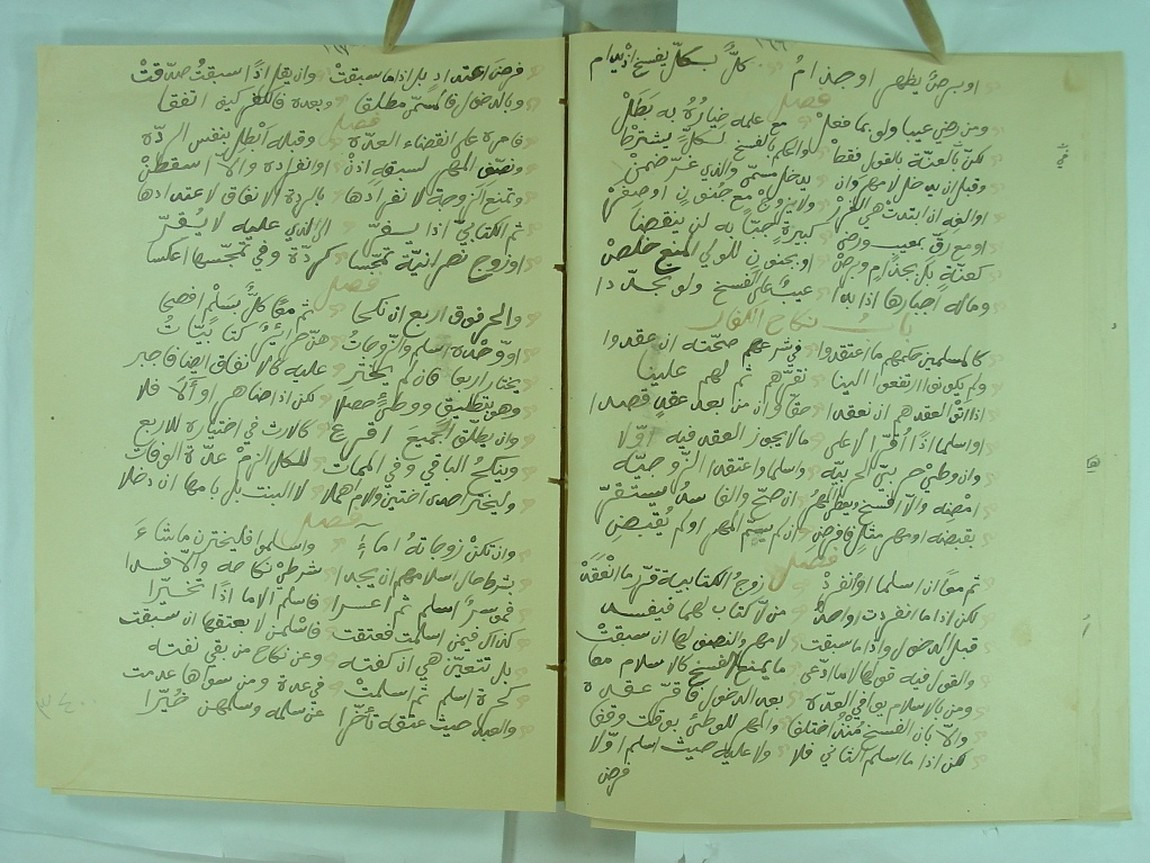 اوبرصٌ يظهر اوجذامُ كلٌّ بكلّ يفسخ
فصل
ومن رضي عيبا ولو بما فعلْ مع علمه خيارُهُ به بَطَلْ
لكن بالعنّة بالقول فقط والحكم بالفسخ لكلٍّ يشترطْ
وقبل ان يدخل لا مهر وان يدخل مسمّى والذي غرّ ضمن
ولا يزوج مع جنون اوصغر
اومع رقّ بمعيب ورضى كبيرةٍ جبّا به لن ينقضا
كعنّة بل بجذام وبرص اوبجنون للولي المنع خلص
وماله اجبارها اذا بدا عيبٌ على الفسخ ولو تجدّدا
باب نكاح الكفار
كالمسلمين حكمهم ما اعتقدوا في شرعهم صحّته ان عقدوا
ولم يكونوا ارتفعوا الينا نقرّهم ثم لهم علينا
اذا اتوا لعقدهم ان نعقدا حقّا وان من بعد عقدٍ قصدا
اواسلما اذًا اُقرّا لا على ما لا يجوز العقد فيه اوّلا
وان وطي حربيّ الحربيّه واسلما واعتقدا الزّوجيّه
امضه والّا افسخ ويعطى المهر ان صحّ والفاسد يستقرّ
بقبضه اومهر مثلٍ فافرض ان لم يسمّ المهر اولم يُقبَضِ
فصل
ثم معًا ان اسلما اوانفردْ زوجُ الكتابية قرّ ما انعقدْ
لكن اذا ما انفردت اواحدُ من لا كتاب لهما فيفسد
قبل الدخول واذا ما سبقت لا مهر والنصف لها ان سبقتْ
والقول فيه قولها لا ما ادّعى ما يمنع الفسخ كالاسلام معا
ومن بالاسلام يوافي العدّة بعد الدخول فاقرّ عقده
والّا بان الفسخ مُنْذُ اختلفا والمهر للوطئ بوقت وقفا
لكن اذا ما اسلم الثاني فلا ولا عليه حيث اسلم اوّلا
فرض
فرضَ اعتداد بل اذا ما سبقتْ وان يقل اذًا سبقتُ صدّقتْ
وبالدخول فالمسمّى مطلقا وبعده فالكفر كيف اتفقا
فصل
فامره على انقضاء العدّة وقبله اَبْطِل بنفس الردّه
ونصّف المهر لسبقه اذنْ اوانفراده والّا اسقطنْ
وتمنع الزوجة لانفرادها بالردة الانفاق لاعتدادها
ثم الكتابيّ اذا الى الذي عليه لا يُقرّ
اوزوج نصرانيّة تمجّسا كردّة وفي تمجّسها اعكسا
فصل
والحر فوق اربع ان نكحا ثم معًا كلٌّ
اووحده اسلم والزّوجاتُ كتابيّاتُ
يختار اربعا فان لم يختر عليه كالانفاق ايضا فاجبر
وهو بتطليقٍ ووطئٍ حصلا لكن اذا ضاهر اوآلى فلا
وان يطلّق الجميع اقرع كالارث في اختياره للاربع
وينكحُ الباقي وفي الممات للكل الزم عدّة الوفات
وليختر احدى اختين ولام اهملا لا البنت بل بامها ان دخلا
فصل
وان تكنْ زوجاتهُ اماءَ واسلموا فليخترن ما شاءَ
بشرط حال اسلامهم ان يجدا شرطيْ نكاحه والّا فسدا
فموسرٌ اسلم ثم اعسرا فاسلم الاما اذًا تخيّرا
كذاك فيمن اسلمت فعتقت فاسلمن لا بعتقها ان سبقت
بل تتعيّن هي ان كفته وعن نكاح من بقي نفته
كحرة اسلم ثم اسلمتْ في عدة ومن سواها عدمت
والعبد حيث عتقه تأخّرا عن سلمه وسلمهن خُيّرا